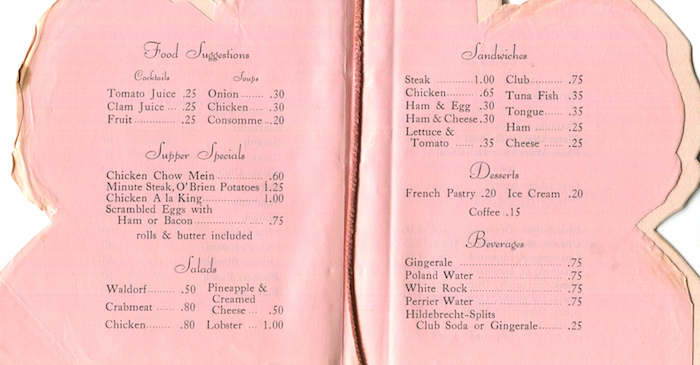 Food Suggestions
Cocktails
Tomato Juice .25
Clam Juice ... .25
Fruit .............. .25
Soups
Onion ........ .30
Chicken ..... .30
Consomme .. .20
Supper Specials
Chicken Chow Mein .............. .60
Minute Steak, O'Brien Potatoes 1.25
Chicken A la King ................. 1.00
Scrambled Eggs with
Ham or Bacon .................. .75
rolls & butter included
Salads
Waldorf ........ .50
Crabmeat ..... .80
Chicken ........ .80
Pineapple &
Creamed
Cheese ... .50
Lobster ... 1.00
Sandwiches
Steak ............ 1.00
Chicken ......... .65
Ham & Egg .30
Ham & Cheese .30
Lettuce &
Tomato ..... .35
Club .......... .75
Tuna Fish .35
Tongue ...... .35
Ham .......... .25
Cheese ...... .25
Desserts
French Pastry .20 Ice Cream .20
Coffee .15
Beverages
Gingerale .............................. .75
Poland Water ......................... .75
White Rock ............................ .75
Perrier Water ......................... .75
Hildebrecht-Splits
Club Soda or Gingerale ........ .25